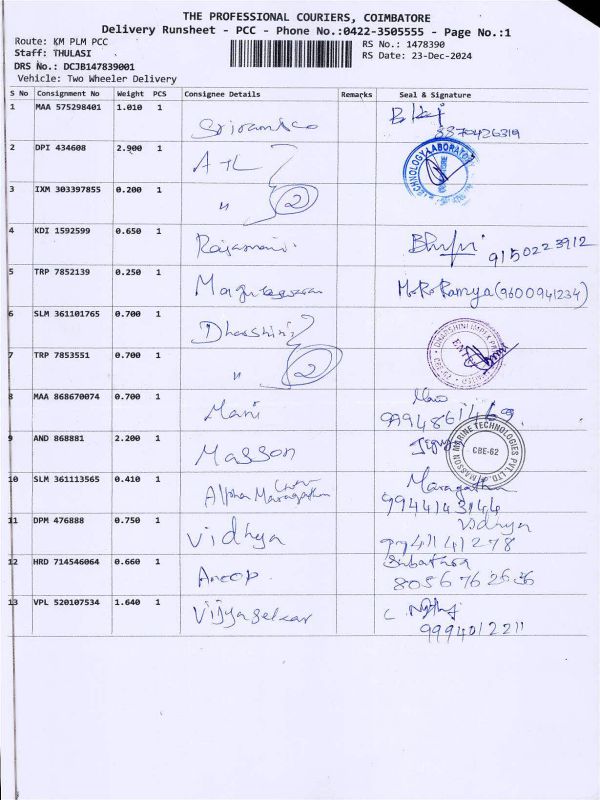 THE PROFESSIONAL COURIERS, COIMBATORE
Delivery Runsheet - PCC - Phone No.:0422-3505555 - Page No.:1
Route: KM PLM PCC
Staff: THULASI
DRS No.: DCJB147839001
Vehicle: Two Wheeler Delivery
RS No.: 1478390
RS Date: 23-Dec-2024
S No Consignment No Weight PCS Consignee Details Remarks Seal & Signature
1 MAA 575298401 1.010 1
8870426319
2 DPI 434608 2.900 1 ATL
TECHNOLOGY LABORATORY
3 IXM 303397855 0.200 1 " 2
4 KDI 1592599 0.650 1 Rajamani 9150223912
5 TRP 7852139 0.250 1 M.R.Ramya (9600941234)
6 SLM 361101765 0.700 1 Dharshini
DHARSHINI IMPEX
7 TRP 7853551 0.700 1 " 2
8 MAA 868670074 0.700 1 Mani
9 AND 868881 2.200 1 Masson
MASSON MARINE TECHNOLOGIES PVT. LTD. CBE-62
10 SLM 361113565 0.410 1 Alpha Maragatham
9944143144
11 DPM 476888 0.750 1 Vidhya Vidhya
9941141278
12 HRD 714546064 0.660 1 Anoop
8056762636
13 VPL 520107534 1.640 1 Vijyasekar
9994012211